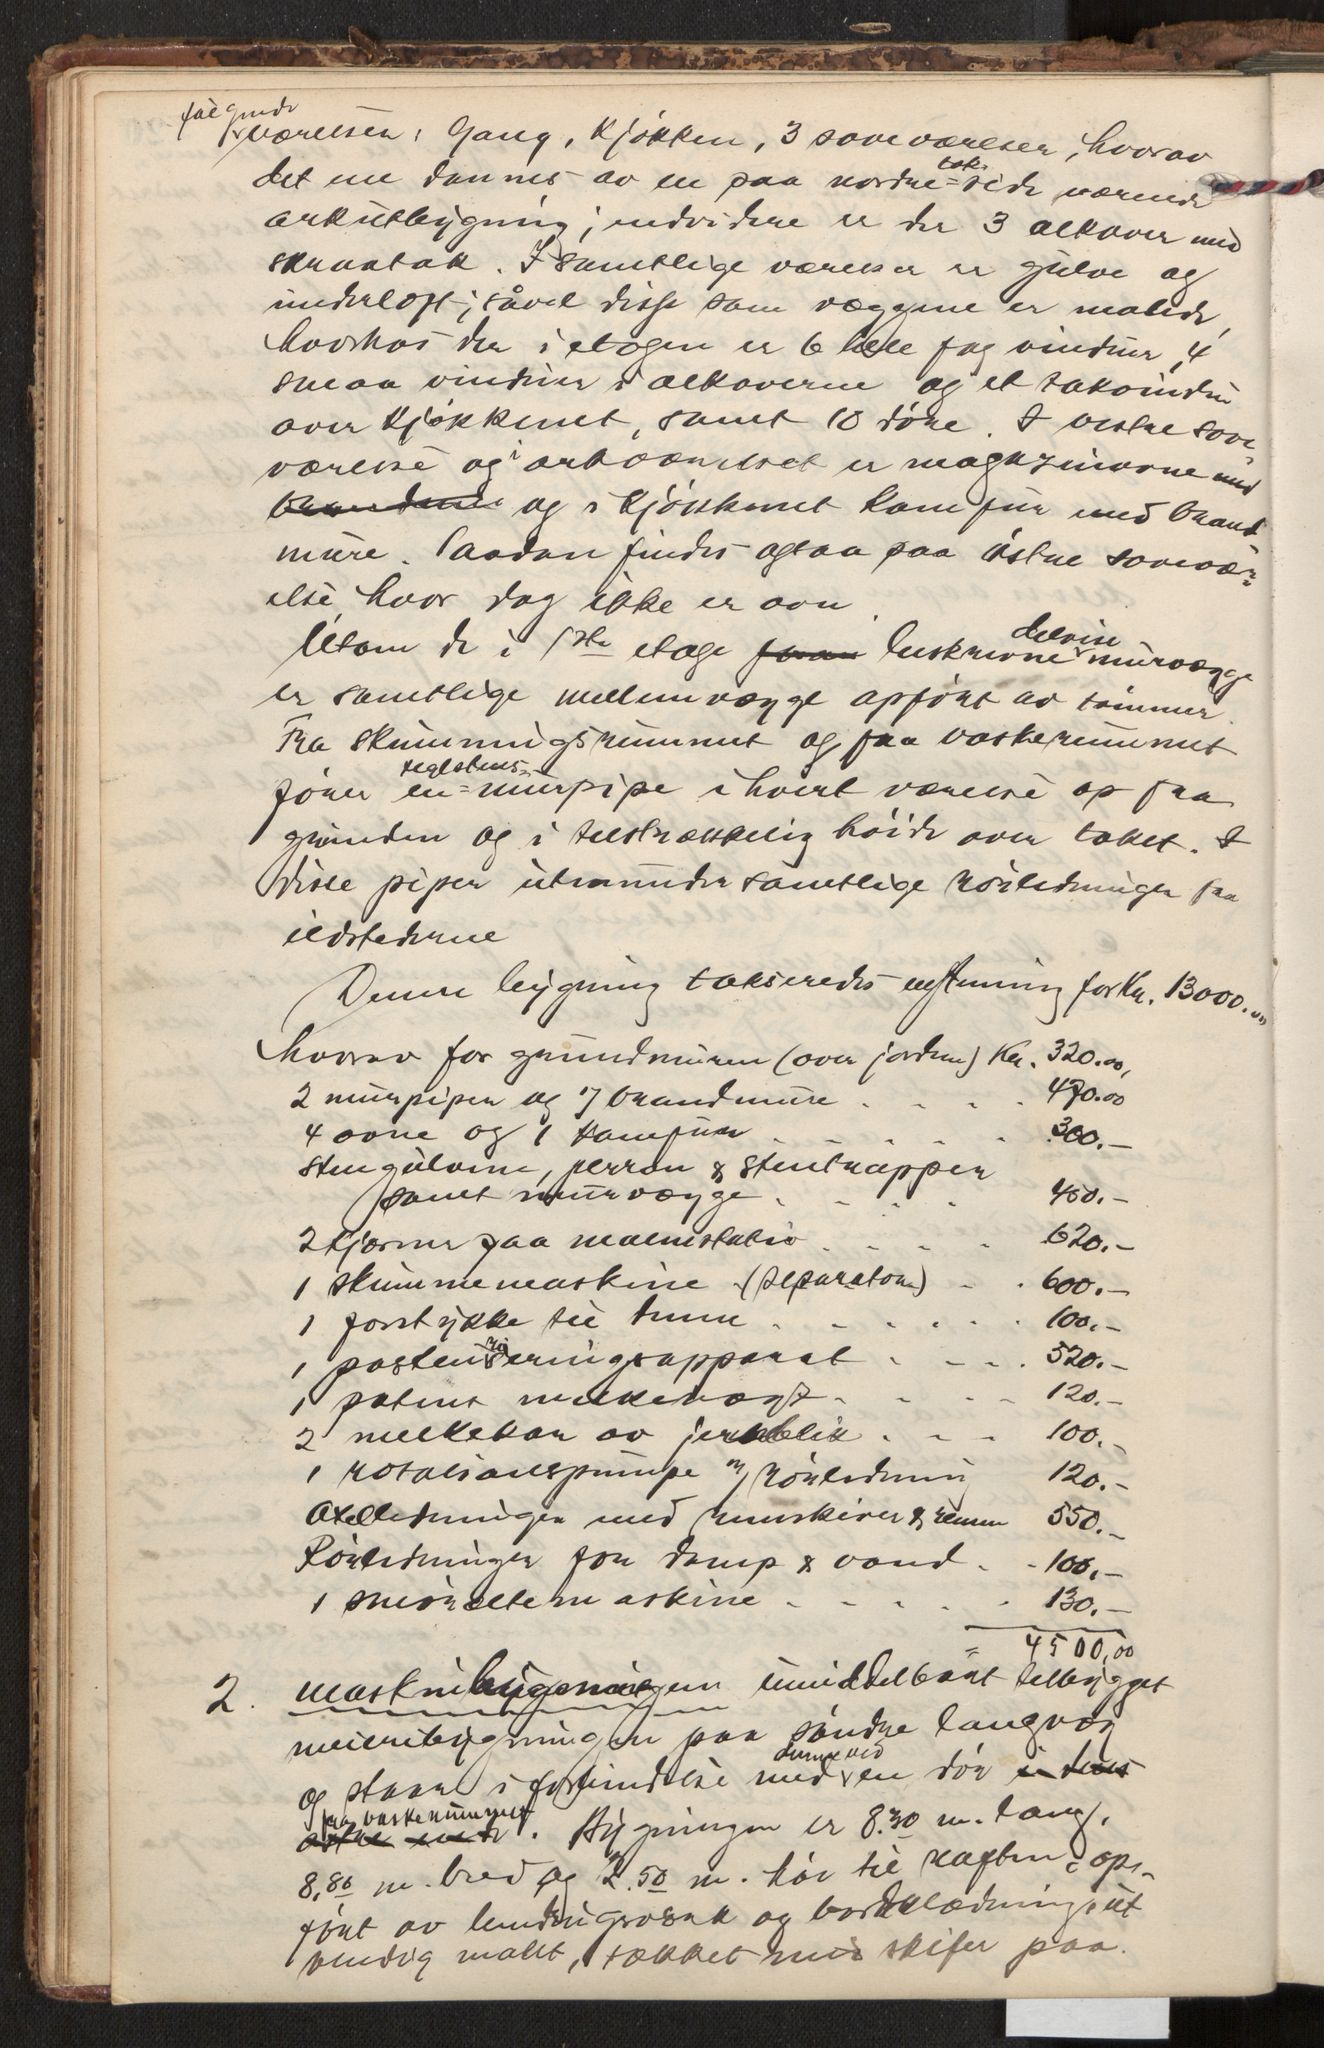 følgende
værelser: Gang, Kjøkken, 3 soveværelser, hvorav
det ene dannes av en paa nordre tak-side værende
arkutbygning; endvidere er der 3 alkover med
skraatak. I samtlige værelser er gulve og
underloft; såvel disse som væggene er malede,
hvorhos der i etagen er 6 hele fag vinduer, 4
smaa vinduer i alkoverne og et takvindu
over Kjøkkenet, samt 10 døre. I vestre sove-
værelse og i arkværelset er magazinovne med
brandmur og i Kjøkkenet komfur med brand
mure. Saadan findes ogsaa paa østre sovevær-
else, hvor dog ikke er ovn.
Utom de i 1ste etage foran beskrevne delvise murvægge
er samtlige mellemvægge opført av tømmer.
Fra skumningsrummet og fra vaskerummet
fører en teglstens-murpipe i hvert værelse op fra
grunden og i tilstrækkelig høide over taket. I
disse piper utmunder samtlige rørledninger fra
ildstederne
Denne bygning takseredes efter mening for Kr. 13000.00
hvorav for grundmuren (over jorden) Kr. 320.00,
2 murpiper og 7 brandmure . . . . 470.00
4 ovne og 1 Komfur . . . . . . 300.-
Stengulvene, perron & stentrapper
samt murvægge . . . . 450.-
2 Kjærner paa malmstativ . . . . 620.-
1 skummemaskine (separator) . . 600.-
1 forstykke til tinne . . . . . . 100.-
1 pasteuriseringsapparat . . . . 520.-
1 patent melkevægt . . . . 120.-
2 melkekar av jernblik . . . 100.-
1 rotationspumpe m/ rørledning 120.-
Axelledninger med remskiver & remme 550.-
Rørledninger for damp & vand . . 100.-
1 smøreltemaskine . . . . . 130.-
= 4500,00
2. Maskinbygningen umiddelbart tilbygget
meieribygningen paa søndre langvæg
og staar i forbindelse med denne ved en dør i dens
østre ende fra vaskerummet. Bygningen er 8.30 m. lang,
8,80 m. bred og 2.50 m. høi til raften, op-
ført av bindingsverk og bordklædning, ut
vendig malt, tækket med skifer paa